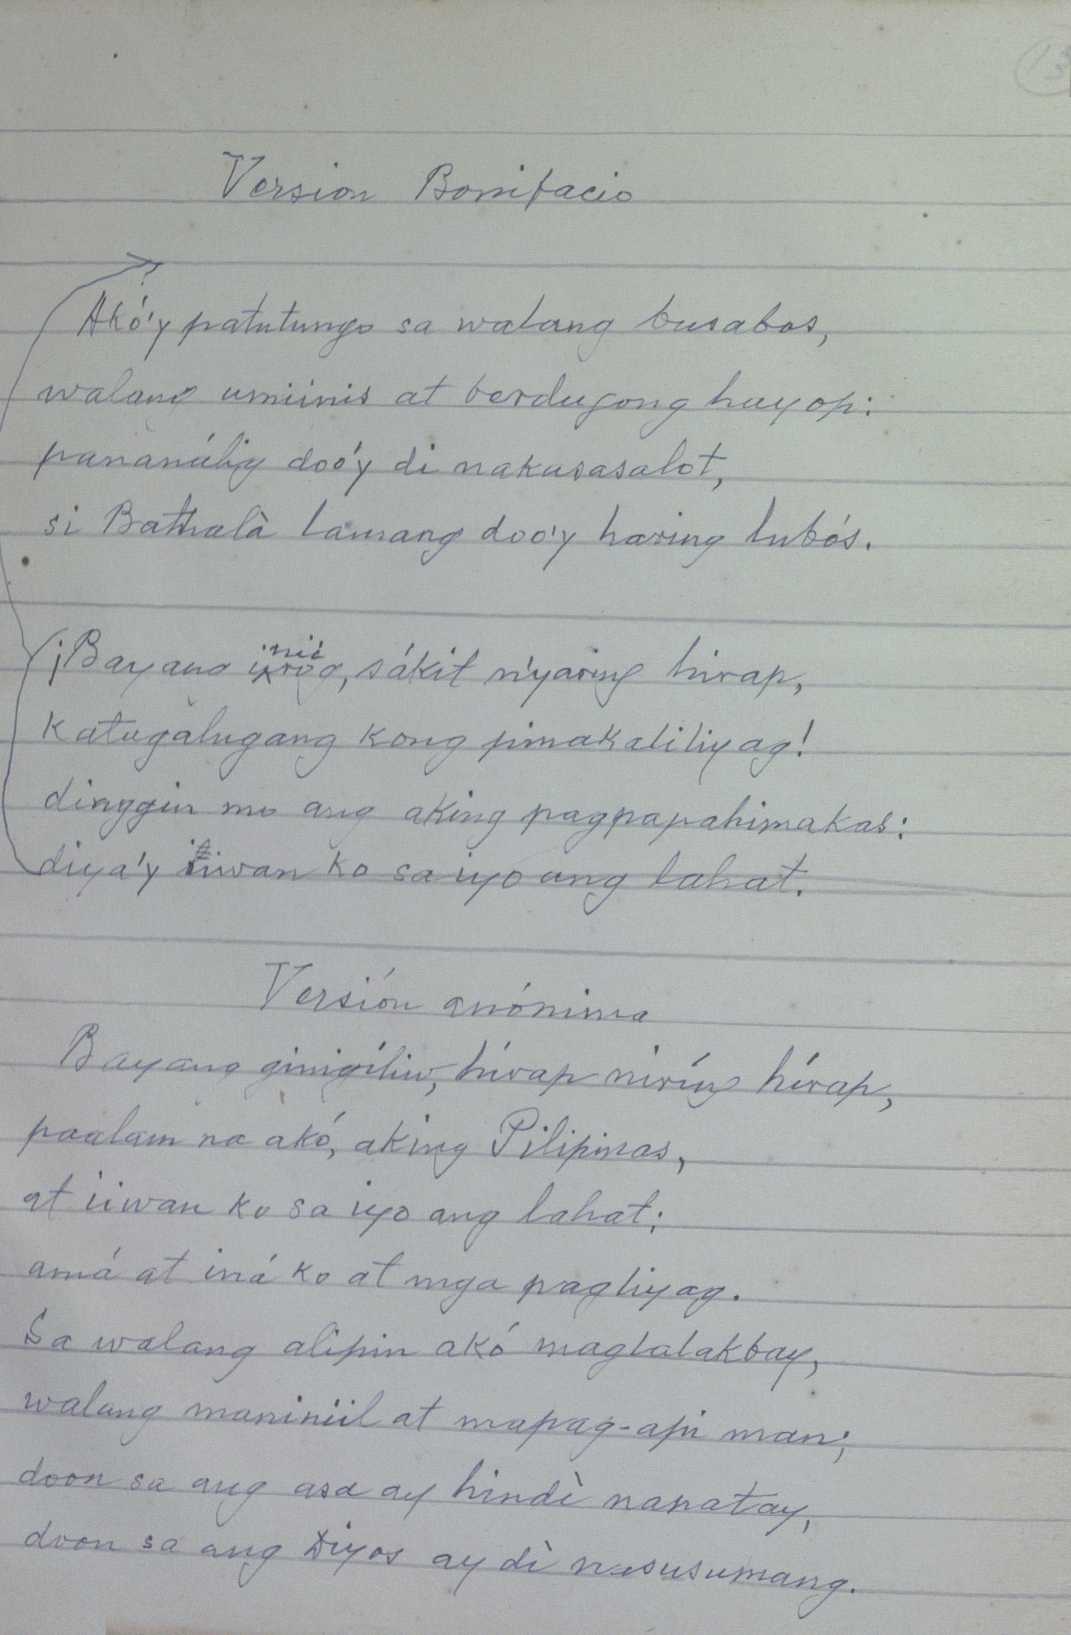 13
Version Bonifacio
Akó'y patutungo sa walang busabos,
walang umiinis at berdugong hayop:
pananálig doó'y di nakasasalot,
si Bathalà lamang doo'y haring lubós.
¡Bayang iniirog, sákit n'yaring hirap,
Katagalugang kong pinakaliliyag!
dinggin mo ang aking pagpapahimakas:
diya'y iiwan ko sa iyo ang lahat.
Versión anónima
Bayang ginigíliw, hírap niríng hírap,
paalam na akó, aking Pilipinas,
at iiwan ko sa iyo ang lahat:
amá at iná ko at mga pagliyag.
Sa walang alipin akó maglalakbay,
walang maniniil at mapag-api man;
doon sa ang asa ay hindì napatay,
doon sa ang Diyos ay dì nasusumang.